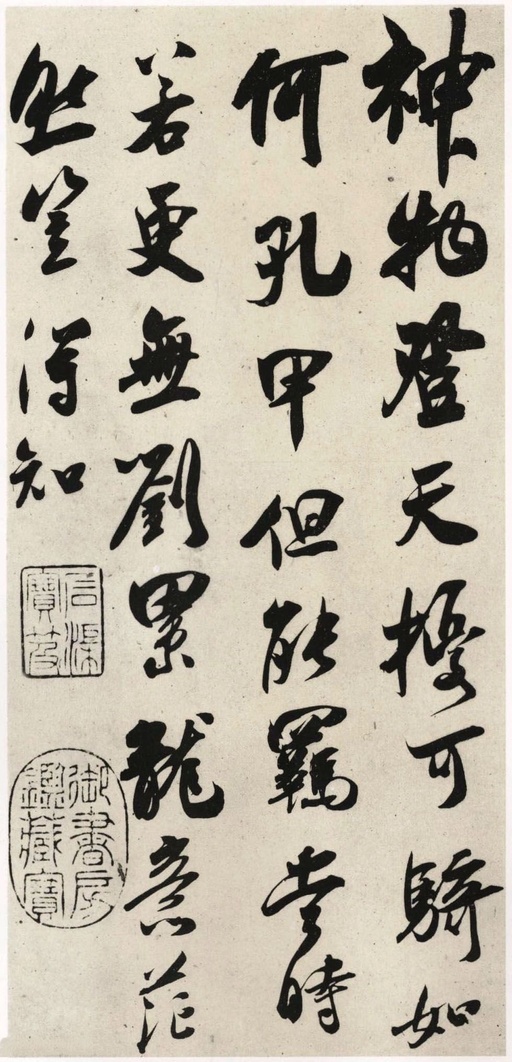 神物登天擾可騎如
何孔甲但能羈當時
若更無劉累龍意茫
然豈得知
石渠
寶笈
御書房
鑑藏寶